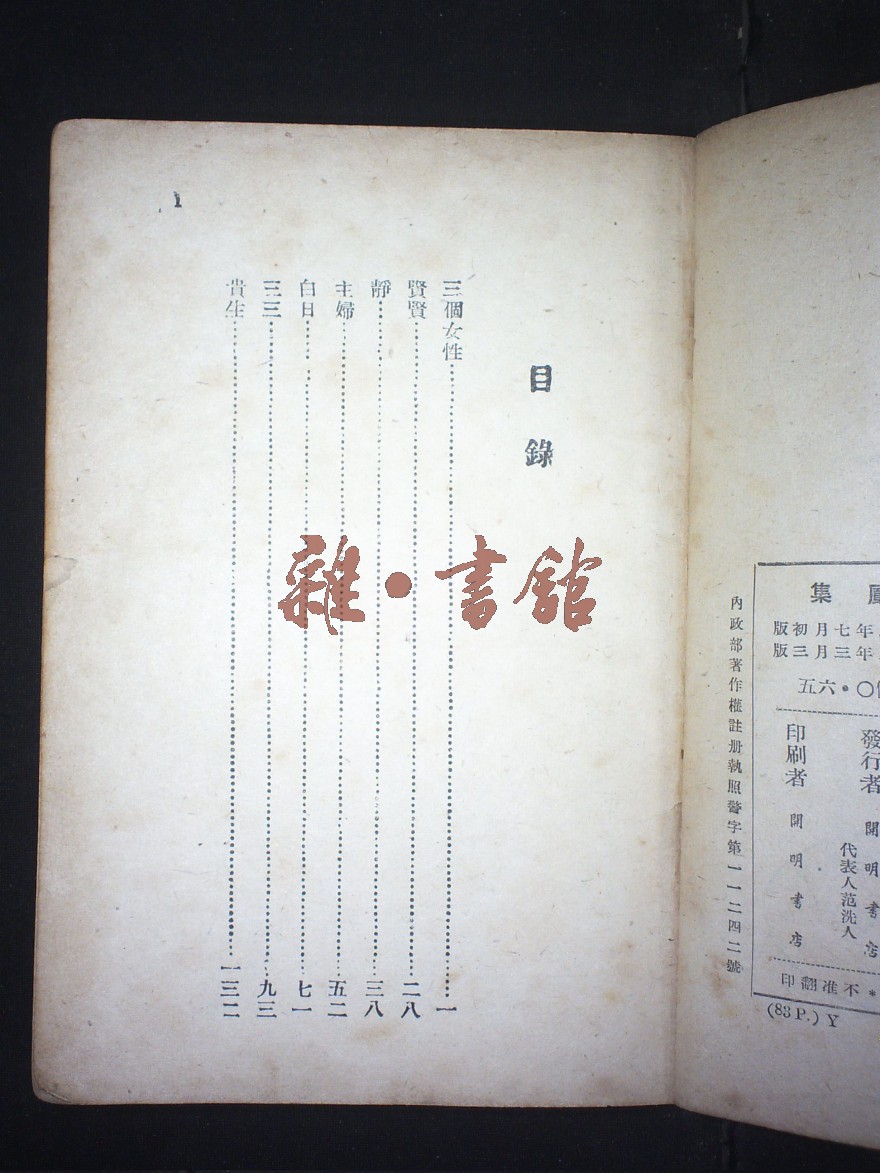 內政部著作權註册執照警字第一一二四二號
集
版初月七年
版三月三年
五六・〇
發行者 開明書店
代表人范洗人
印刷者 開明書店
印翻准不＊
(83 P.) Y
目錄
三個女性……一
賢賢……二八
靜……三八
主婦……五二
白日……七一
三三……九三
貴生……一三二
1
雜・書館